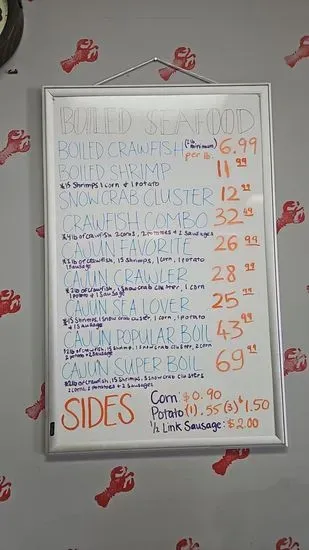 BOILED SEAFOOD
BOILED CRAWFISH (2 lb. minimum) 6.99 per lb.
BOILED SHRIMP 11.99
*15 Shrimps, 1 corn + 1 potato
SNOWCRAB CLUSTER 12.99
CRAWFISH COMBO 32.49
*4 lb of crawfish, 2 corns, 2 potatoes + 2 sausages
CAJUN FAVORITE 26.99
*2 lb of crawfish, 15 shrimps, 1 corn, 1 potato
1 sausage
CAJUN CRAWLER 28.99
*2 lb of crawfish, 1 snow crab cluster, 1 corn
1 potato + 1 sausage
CAJUN SEA LOVER 25.99
*15 Shrimps, 1 snow crab cluster, 1 corn, 1 potato
+ 1 sausage
CAJUN POPULAR BOIL 43.99
*2 lb of crawfish, 15 shrimp, 1 snow crab cluster, 2 corn
2 potato + 2 sausage
CAJUN SUPER BOIL 69.99
lb of crawfish, 15 shrimps, snow crab clusters
2 corn, 2 potatoes + 2 sausages
SIDES
Corn: $0.90
Potato (1) .55 (3) $1.50
1/2 Link Sausage: $2.00